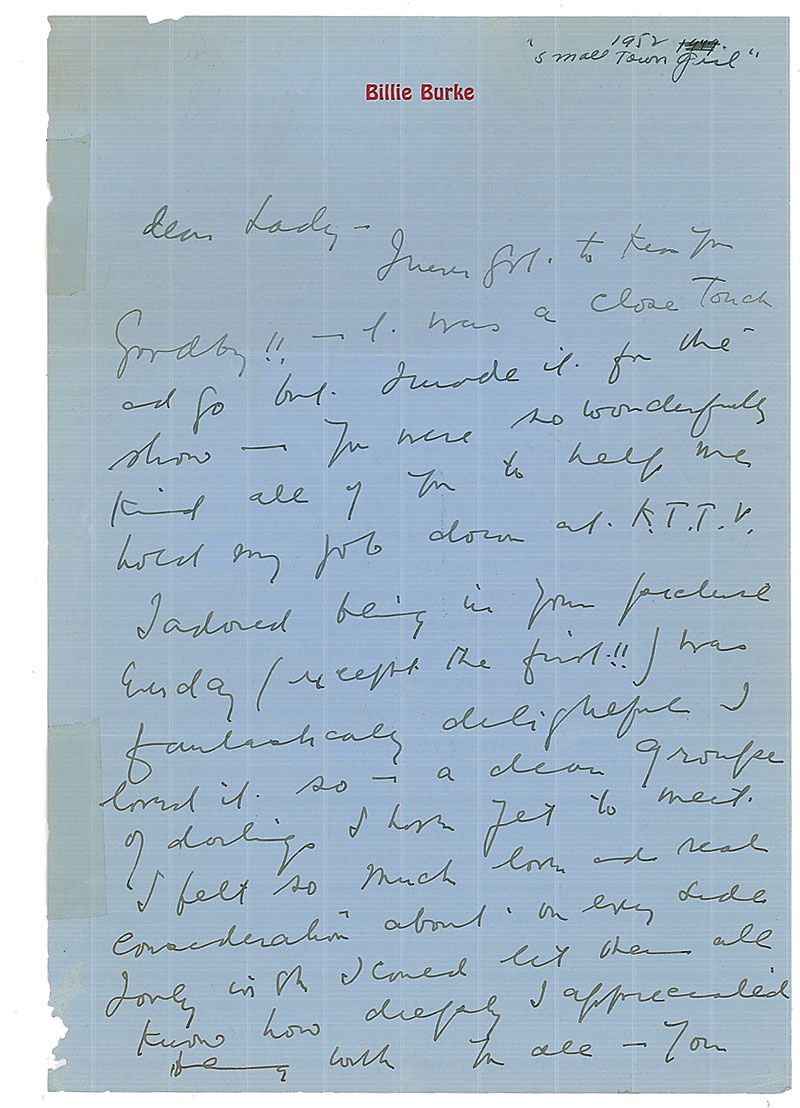 1952 1949.
"Small Town Girl"
Billie Burke
dear Lady —
I never got. to kiss you
Goodby!! — It. was a close Touch
ad go but. I made it. for the
show — You were so wonderfully
kind all of you to help me
hold my job down at. K.T.T.V.
I adored being in your picture
Everday (except the first.!!) was
fantastically delightful I
loved it. so — a dear Groupe
of darlings I have yet to meet.
I felt so much love and real
consideration about. on every side
I only wish I could let them all
know how deeply I appreciated
being with you all — You